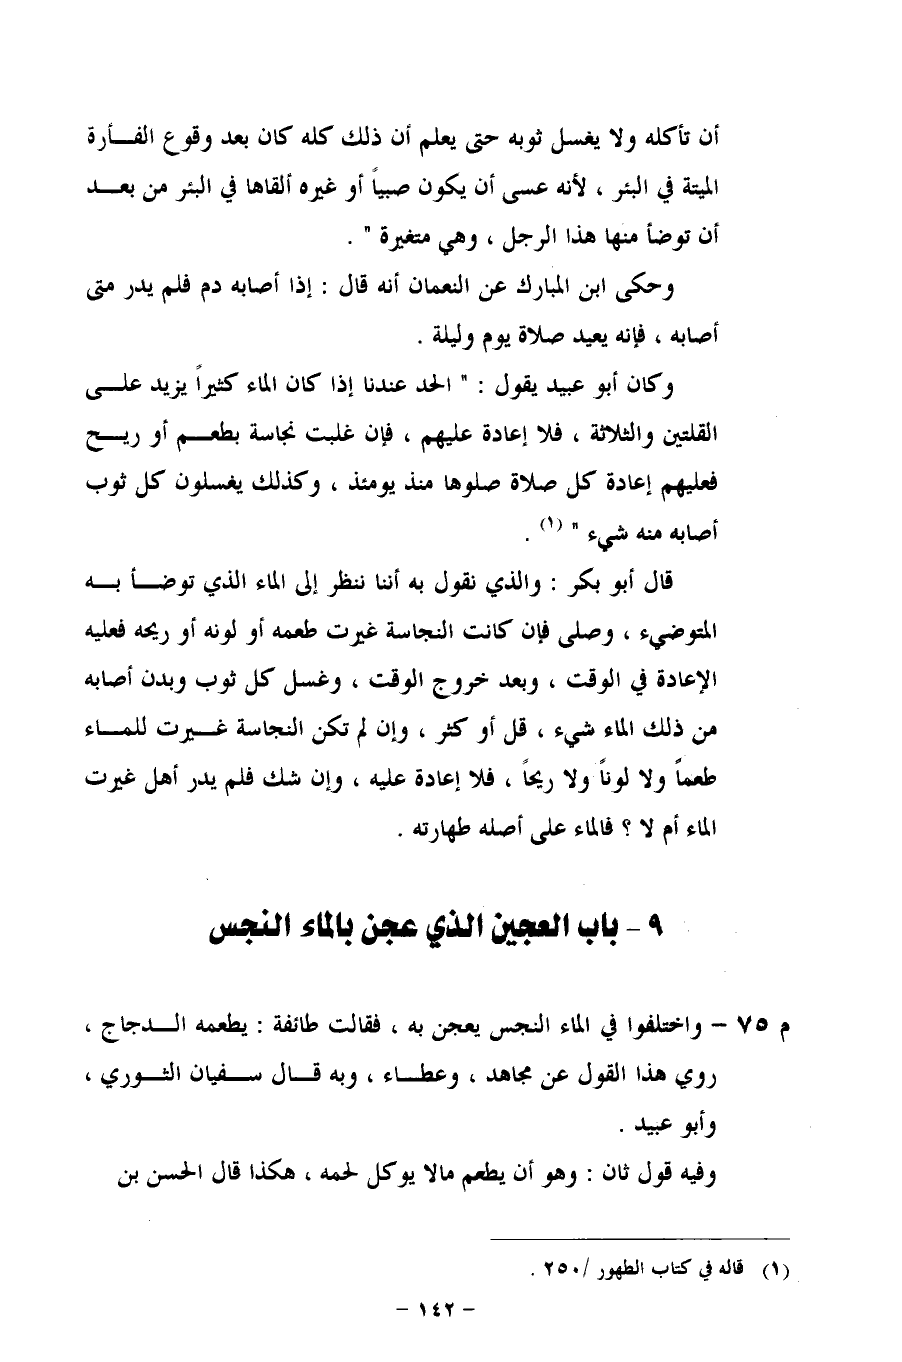 أن تأكله ولا يغسل ثوبه حتى يعلم أن ذلك كله كان بعد وقوع الفـأرة
الميتة في البئر ، لأنه عسى أن يكون صبياً أو غيره ألقاها في البئر من بعـد
أن توضأ منها هذا الرجل ، وهي متغيرة " .
وحكى ابن المبارك عن النعمان أنه قال : إذا أصابه دم فلم يدر متى
أصابه ، فإنه يعيد صلاة يوم وليلة .
وكان أبو عبيد يقول : " الحد عندنا إذا كان الماء كثيراً يزيد علـى
القلتين والثلاثة ، فلا إعادة عليهم ، فإن غلبت نجاسة بطعـم أو ريـح
فعليهم إعادة كل صلاة صلوها منذ يومئذ ، وكذلك يغسلون كل ثوب
أصابه منه شيء " (١) .
قال أبو بكر : والذي نقول به أننا ننظر إلى الماء الذي توضـأ بـه
المتوضيء ، وصلى فإن كانت النجاسة غيرت طعمه أو لونه أو ريحه فعليه
الإعادة في الوقت ، وبعد خروج الوقت ، وغسل كل ثوب وبدن أصابه
من ذلك الماء شيء ، قل أو كثر ، وإن لم تكن النجاسة غـيرت للمـاء
طعماً ولا لوناً ولا ريحاً ، فلا إعادة عليه ، وإن شك فلم يدر أهل غيرت
الماء أم لا ؟ فالماء على أصله طهارته .
٩ - باب العجين الذي عجن بالماء النجس
م ٧٥ - واختلفوا في الماء النجس يعجن به ، فقالت طائفة : يطعمه الـدجاج ،
روي هذا القول عن مجاهد ، وعطـاء ، وبه قـال سـفيان الثـوري ،
وأبو عبيد .
وفيه قول ثان : وهو أن يطعم مالا يوكل لحمه ، هكذا قال الحسن بن
(١) قاله في كتاب الطهور /٢٥٠ .
- ١٤٢ -